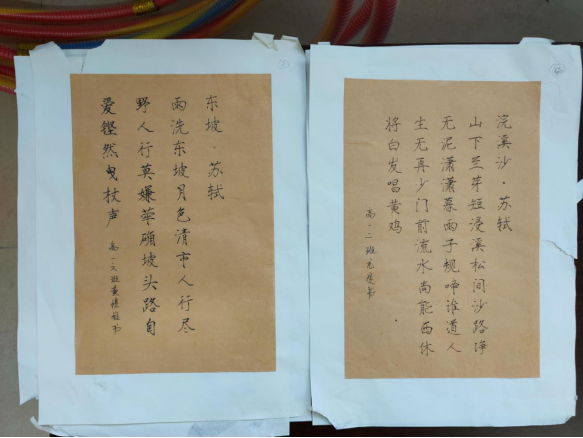 东坡·苏轼
雨洗东坡月色清市人行尽
野人行莫嫌荦确坡头路自
爱铿然曳杖声
高一六班黄书
浣溪沙·苏轼
山下兰芽短浸溪松间沙路净
无泥潇潇暮雨子规啼谁道人
生无再少门前流水尚能西休
将白发唱黄鸡
高一二班书